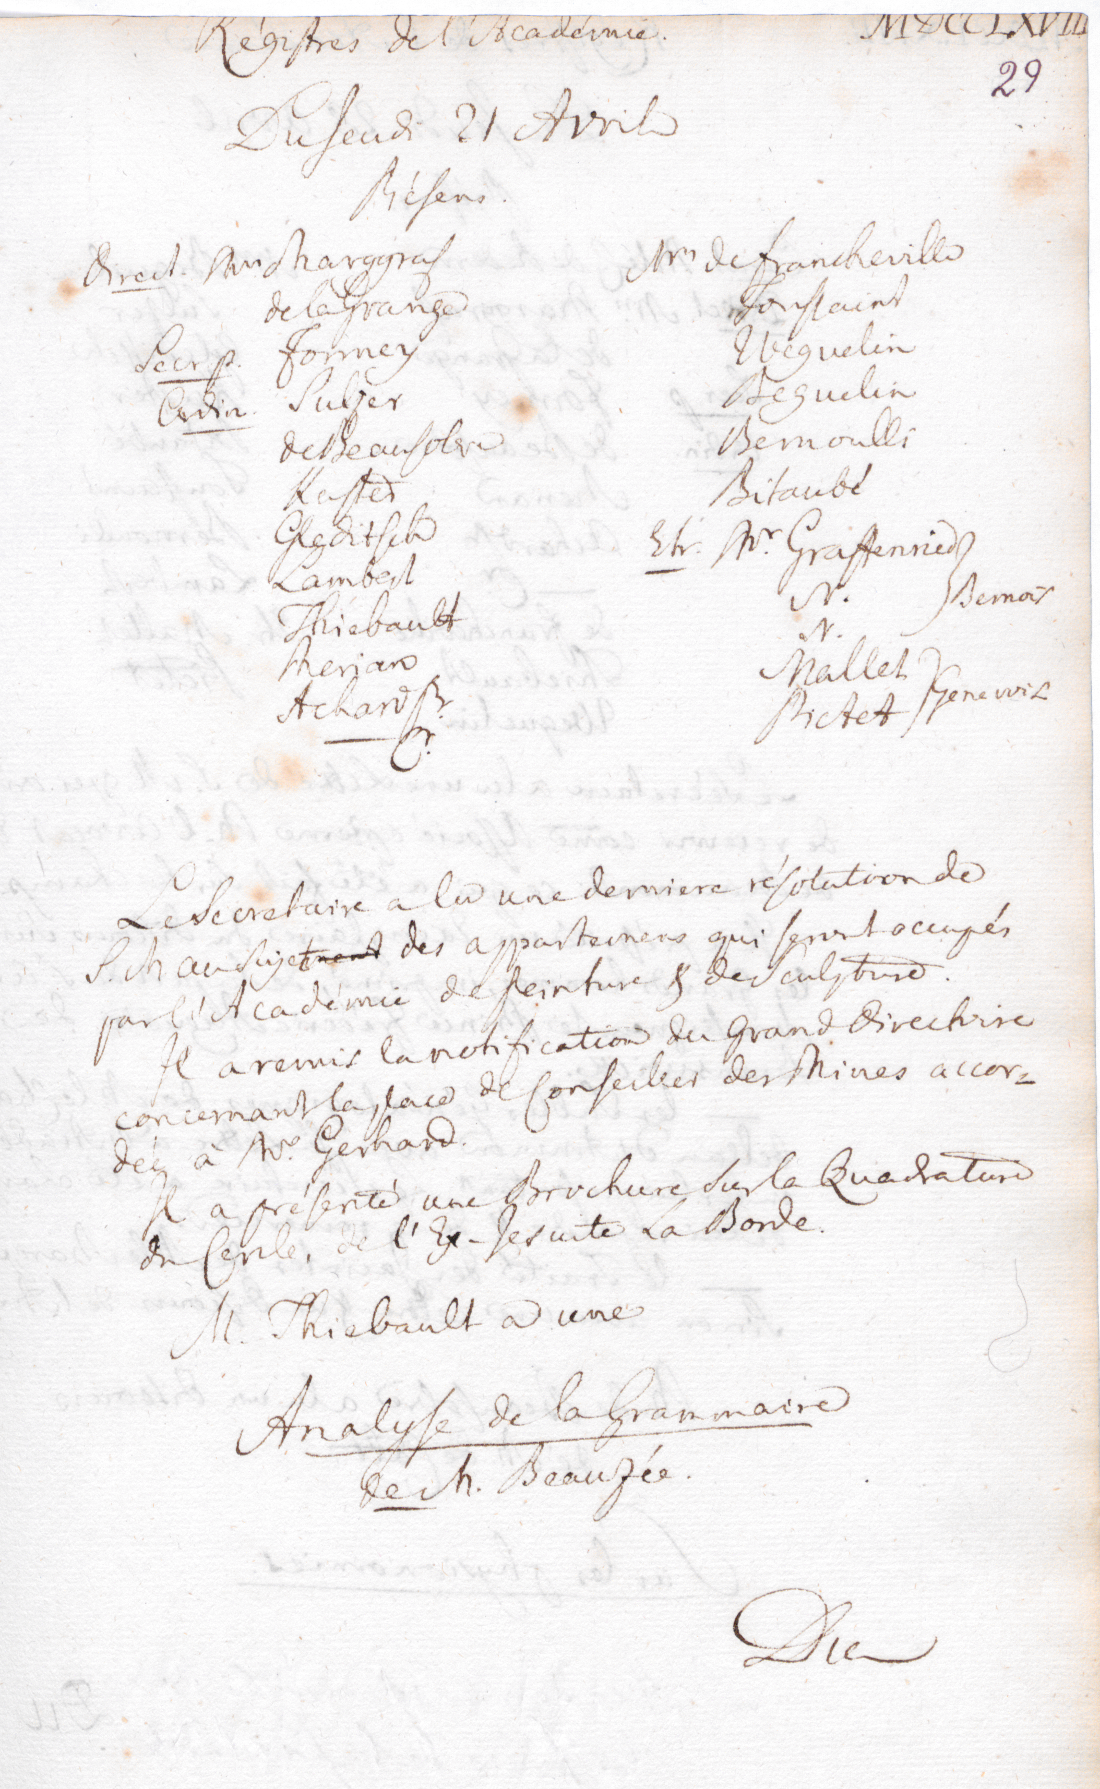 Régistres de l'Académie. MDCCLXVIII
29
Du Jeudi 21 Avril
Présens.
Direct. Mrs Marggraf
de la Grange
Secr. p. Formey
Ordin. Sulzer
de Beausobre
Kuster
Gleditsch
Lambert
Thiébault
Merian
Achard Pr.
Mrs de Francheville
Toussaint
Weguelin
Beguelin
Bernoulli
Bitaubé
Etr. Mr. Graffenried
N. } Bernois
N.
Mallet } Genevois
Pictet
Le Secretaire a lu une derniere résolution de
S. M au sujet des appartemens qui seront occupés
par l'Académie de peinture & de Sculpture.
Il a remis la notification du Grand Directoire
concernant la place de Conseiller des Mines accor=
dée à Mr. Gerhard.
Il a présenté une Brochure sur la Quadrature
du Cercle, de l'Ex-Jesuite La Borde.
M. Thiebault a une
Analyse de la Grammaire
de M. Beauzée.
Du